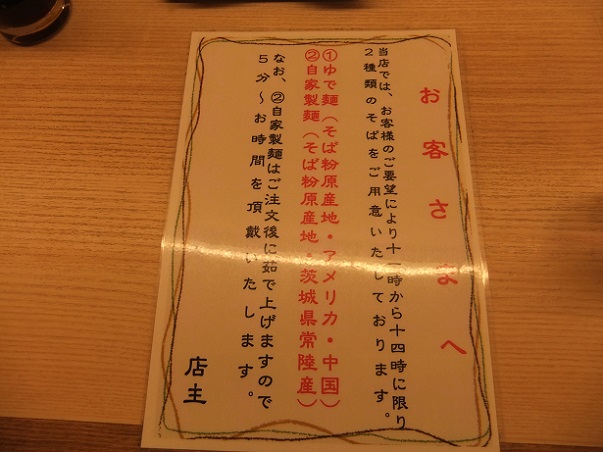 お客さまへ
当店では、お客様のご要望により十一時から十四時に限り
２種類のそばをご用意いたしております。
①ゆで麺（そば粉原産地・アメリカ・中国）
②自家製麺（そば粉原産地・茨城県常陸産）
なお、②自家製麺はご注文後に茹で上げますので
５分～お時間を頂戴いたします。
店主